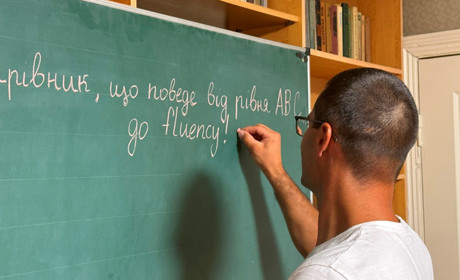 -рівник, що поведе від рівня ABC
до fluency!